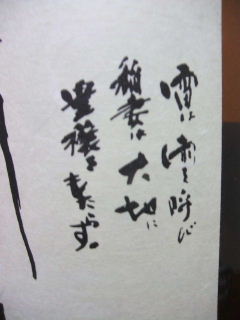 雷は雨を呼び
稲妻は大地に
豊穣をもたらす。